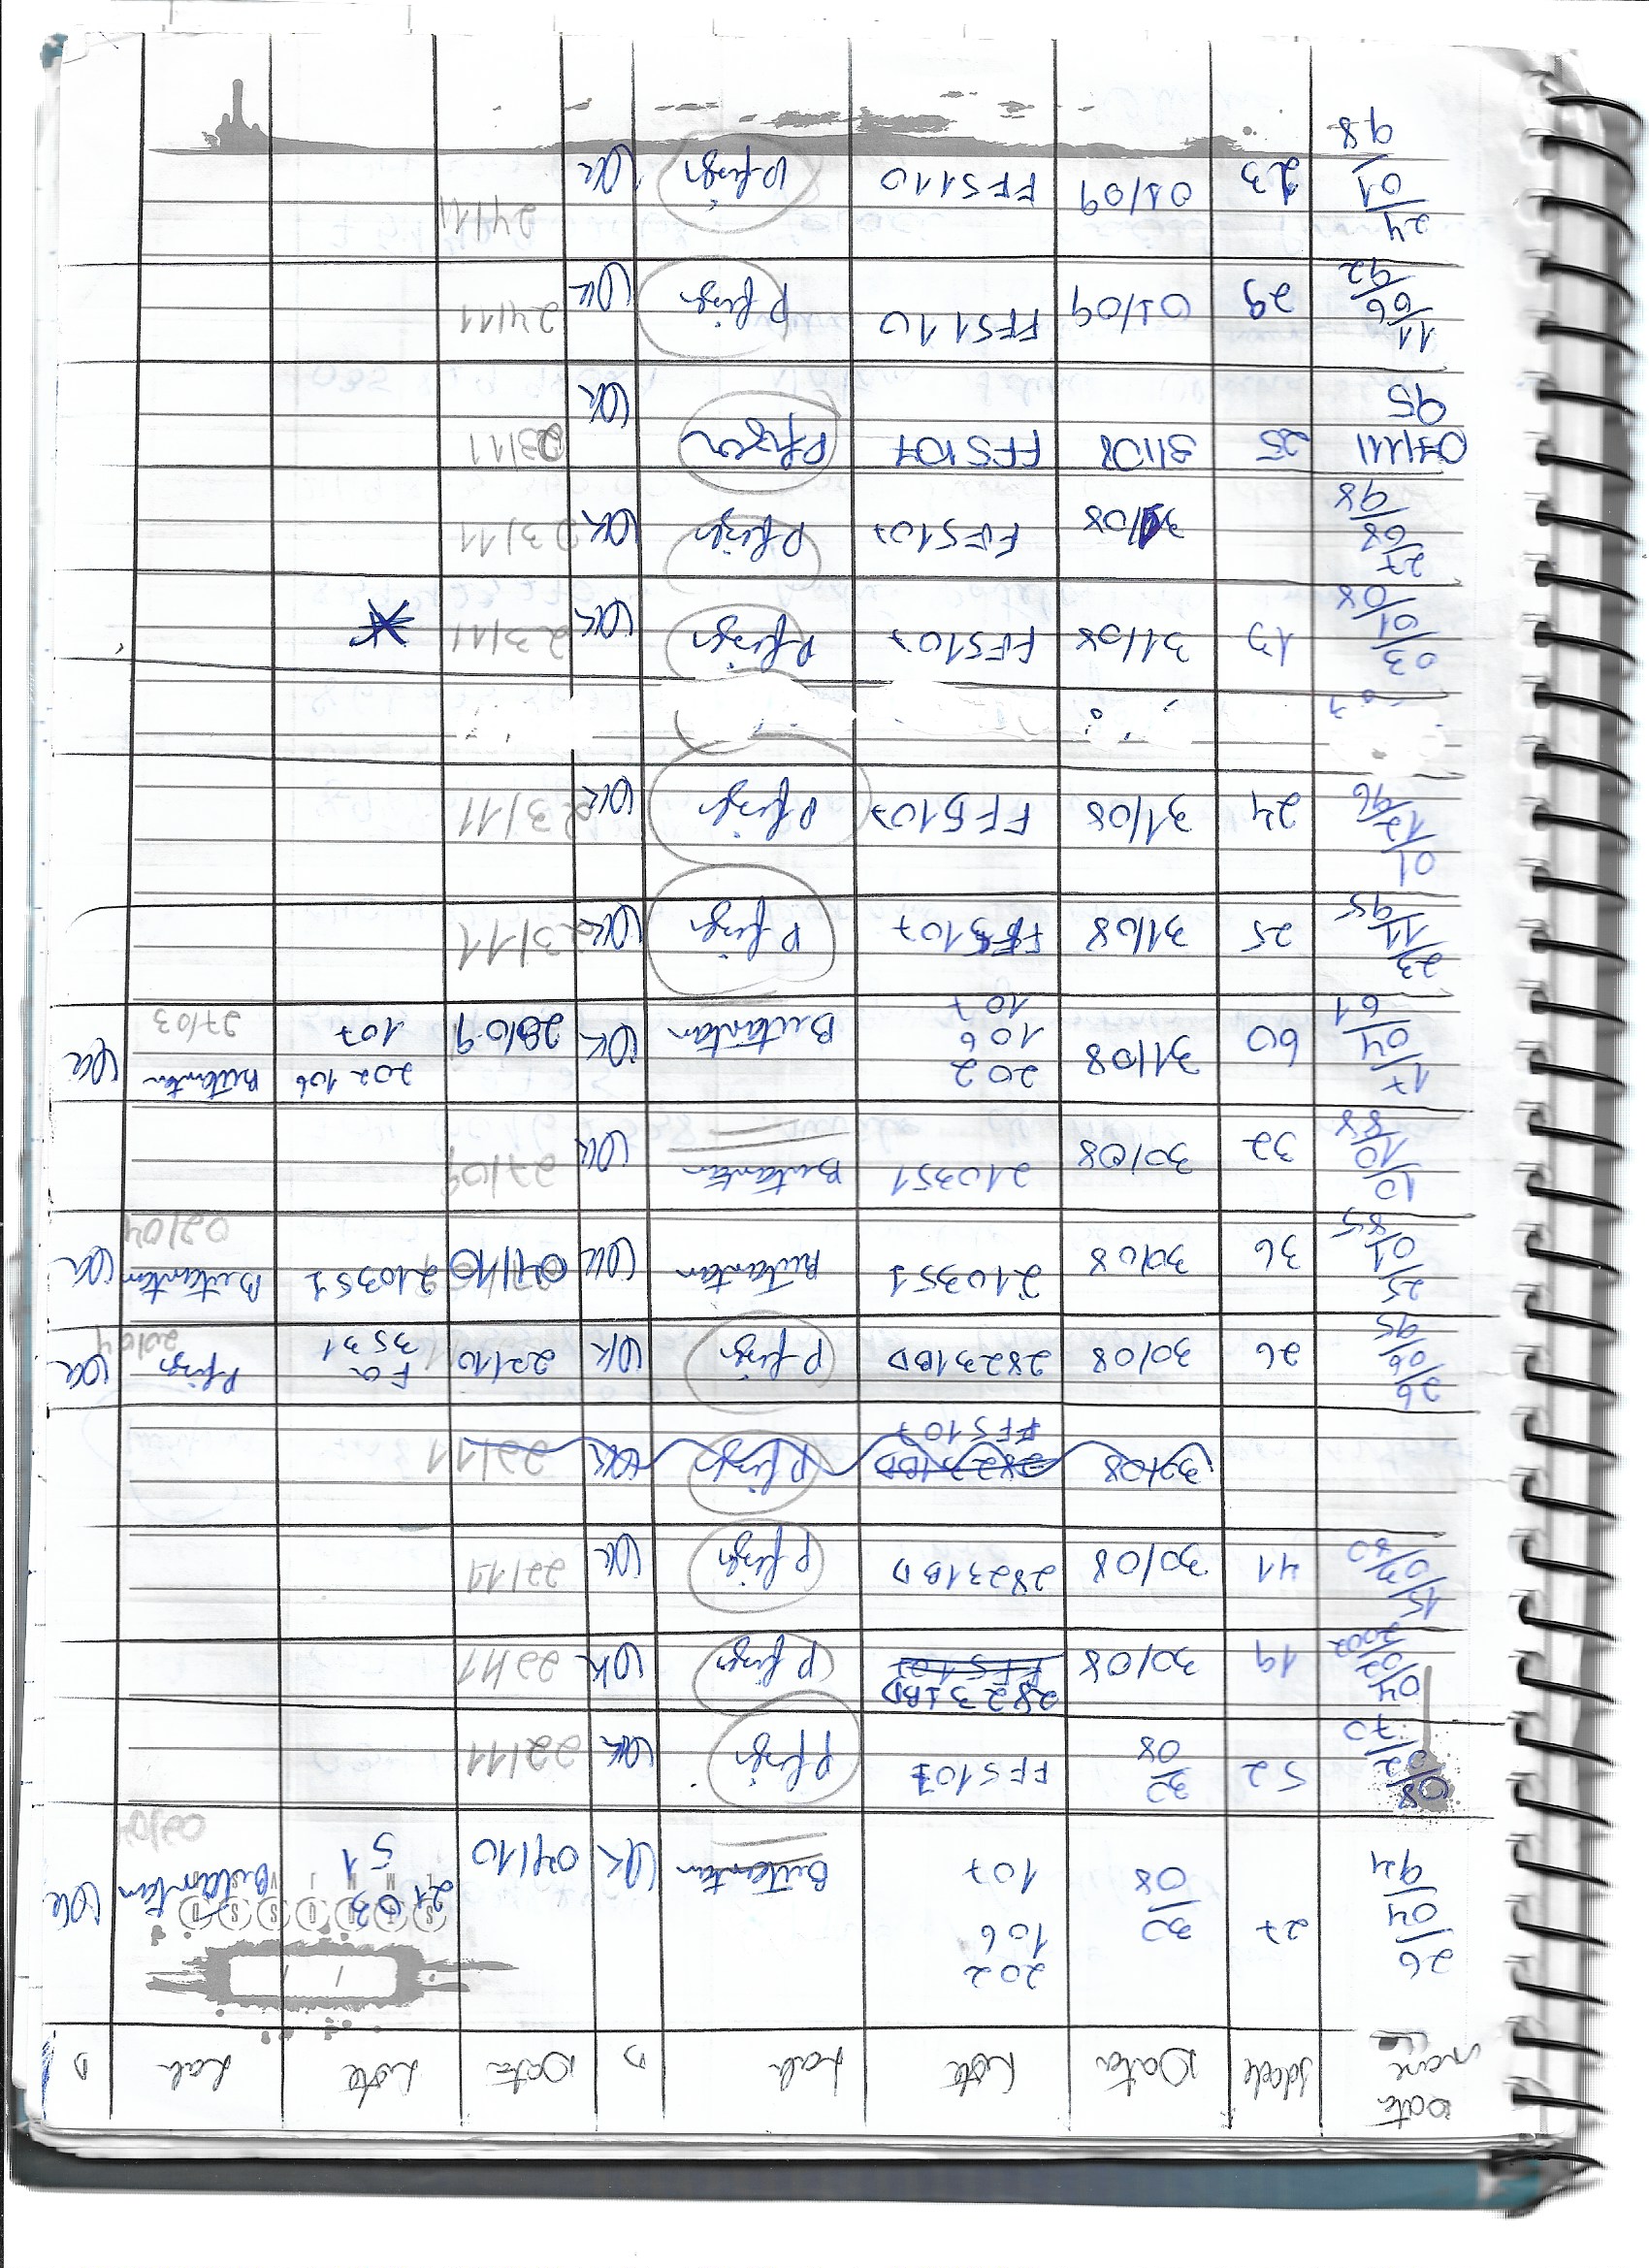 Data nasc Idade Data Lote Lab D Data Lote Lab D
26/04/94 27 30/08 202 106 107 Butantan OK 04/10 210351 Butantan OK
08/02/70 52 30/08 FF5107 Pfizer OK 22/11
04/02/2002 19 30/08 28231BD FF5107 Pfizer OK 22/11
15/01/80 41 30/08 28231BD Pfizer OK 22/11
30/08 28231BD FF5107 Pfizer OK 22/11
26/06/95 26 30/08 28231BD Pfizer OK 22/10 Fa 3531 Pfizer 20/04 OK
25/01/85 36 30/08 210351 Butantan OK 210351 Butantan 02/04 OK
10/10/88 32 30/08 210351 Butantan OK 27/09
17/04/61 60 31/08 202 106 107 Butantan OK 28/09 202106 107 Butantan 27/03 OK
23/11/95 25 31/08 FF5107 Pfizer OK 23/11
01/12/96 24 31/08 FF5107 Pfizer OK 23/11
03/01/08 13 31/08 FF5107 Pfizer OK 23/11
27/08/98 31/08 FF5107 Pfizer OK 23/11
95 25 31/08 FF5107 Pfizer OK 23/11
11/06/92 29 01/09 FF5110 Pfizer OK 24/11
24/01/98 23 01/09 FF5110 Pfizer OK 24/11